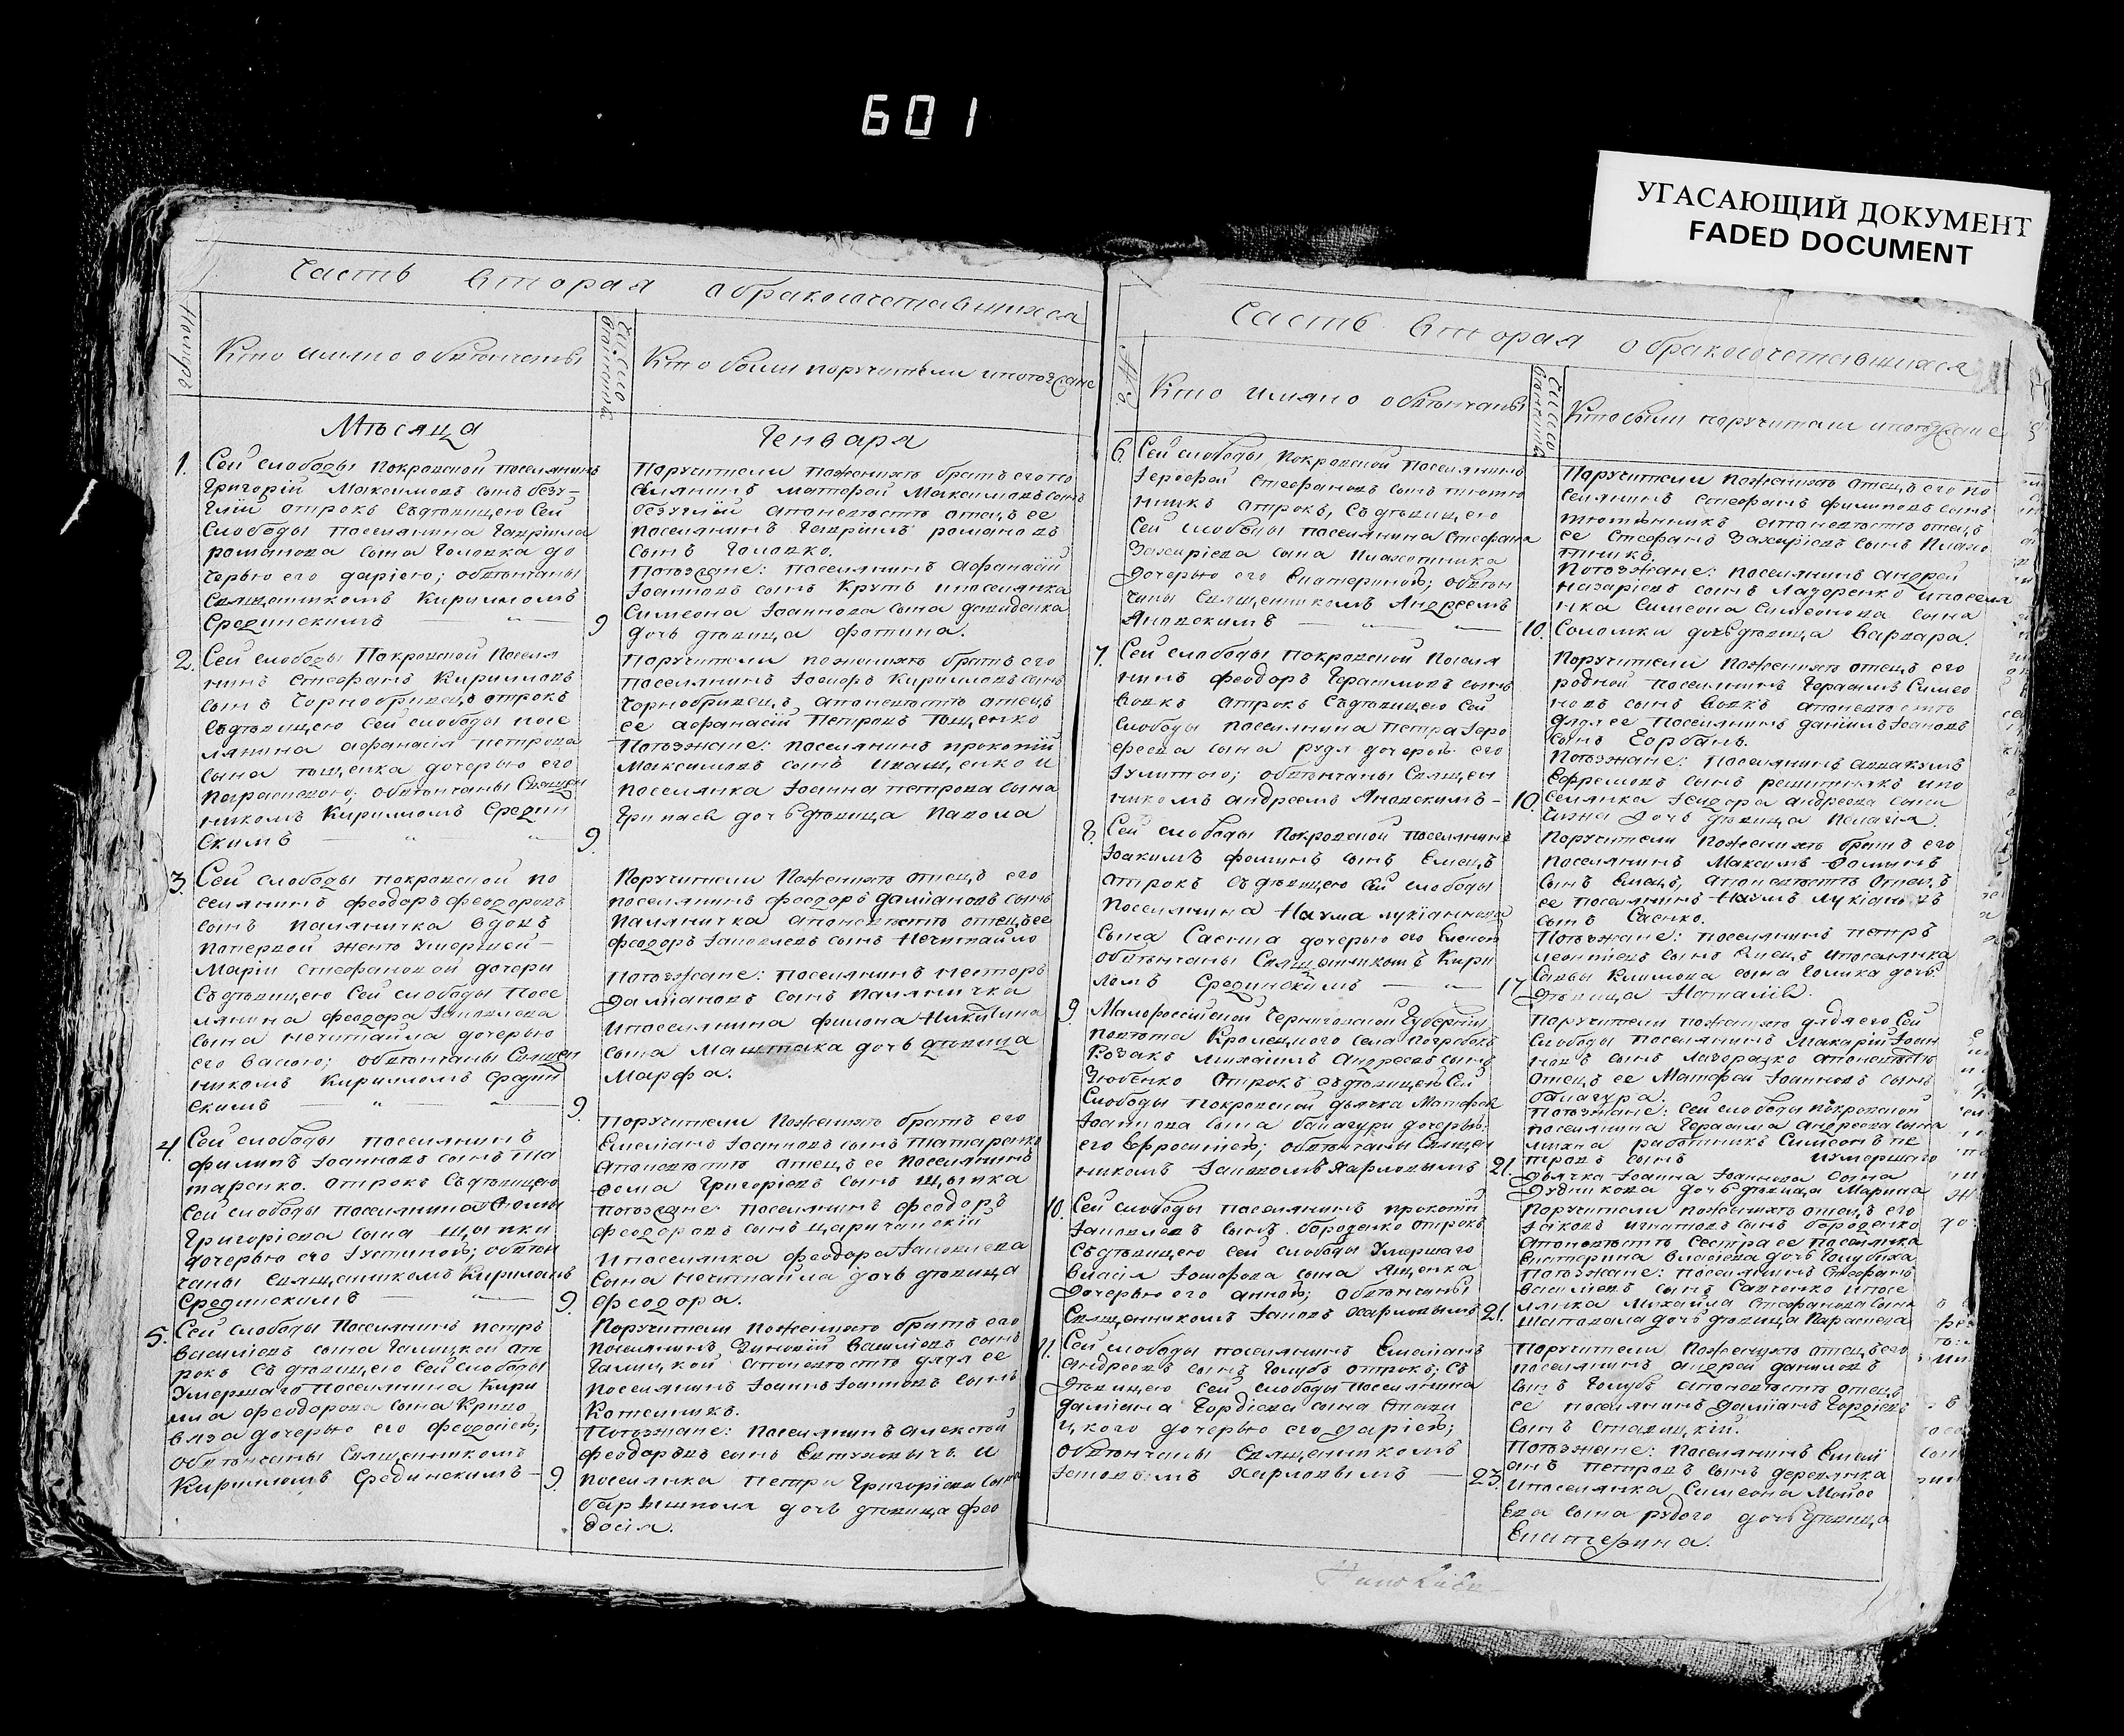 601
УГАСАЮЩИЙ ДОКУМЕНТ
FADED DOCUMENT
Часть Вторая обракосочетавшихся
Номеръ
Кто имяно обвѣнчаны
Число
Кто были поручители ипоѣзжане
Мѣсяца
Генваря
1. Сей слободы покровской поселянинъ
Григорій Максимовъ сынъ безу-
глій отрокъ Съдѣвицею Сей
Слободы поселянина Гавріила
романова сына Головка до
черью его дарією; обвѣнчаны
Священникомъ Кирилломъ
Срединскимъ
9
Поручители поженихѣ братъ его по
селянинъ Матфей Максимовъ сынъ
безуглій апоневѣстѣ отецъ ее
поселянинъ Гавріилъ романовъ
сынъ Головко.
Поѣзжане: поселянинъ Афанасій
Іоанновъ сынъ Круть ипоселянка
Симеона Іоаннова сына давиденка
дочь дѣвица фотина.
2. Сей слободы Покровской Поселя
нинъ Стефанъ Кирилловъ
сынъ Чорнобривецъ отрокъ
Съдѣвицею Сей слободы посе
лянина Афанасія петрова
сына тощенка дочерью его
Параскевою; обвѣнчаны Священ
никомъ Кирилломъ Средин
скимъ
9.
Поручители поженихѣ братъ его
поселянинъ Іосифъ Кирилловъ сынъ
Чорнобривецъ, апоневѣстѣ отецъ
ее Афанасій Петровъ Тощенко
Поѣзжане: поселянинъ прокопій
Максимовъ сынъ иващенко и
поселянка Іоанна петрова сына
Гринаск дочь дѣвица Павола
3. Сей слободы покровской по
селянинъ феодоръ феодоровъ
сынъ паляничка вдовъ
попервой женѣ Умершей-
Маріи Стефановой дочери
Съдѣвицею Сей слободы посе
лянина феодора Іаковлева
сына нечитайла дочерью
его васою; обвѣнчаны Священ
никомъ Кирилломъ Средин
скимъ
9.
Поручители Поженихѣ отецъ его
поселянинъ феодоръ даміановъ сынъ
Паляничка апоневѣстѣ отецъ ее
феодоръ Іаковлевъ сынъ Нечитайло
Поѣзжане: поселянинъ несторъ
Даміановъ сынъ паляничка
ипоселянина филона Никитина
сына Маштака дочь дѣвица
Марфа.
4. Сей слободы поселянинъ
филипъ Іоанновъ сынъ та
таренко. отрокъ Съдѣвицею
Сей слободы поселянина Фомы
Григоріева сына щыпки
дочерью его Іустиною; обвѣн
чаны Священникомъ Кириломъ
Срединскимъ
9.
Поручители Поженихѣ братъ его
Емеліанъ Іоанновъ сынъ татаренко
апоневѣстѣ отецъ ее поселянинъ
Фома Григоріевъ сынъ щыпка
Поѣзжане поселянинъ феодоръ
феодоровъ сынъ царичанскій
Ипоселянка феодора Іаковлева
сына нечитайла дочь дѣвица
феодора.
5. Сей слободы Поселянинъ петръ
Василіевъ сынъ Галицкой от
рокъ Съ дѣвицею Сей слободы
Умершаго поселянина Кири
лла феодорова сына Криво
вяза дочерью его феодосією;
Обвѣнчаны Священникомъ
Кирилломъ Срединскимъ-
9.
Поручители поженихѣ братъ его
поселянинъ Зиновій Василіевъ сынъ
Галицкой апоневѣстѣ дядя ее
поселянинъ Іоаннъ Іоанновъ сынъ
Котелникъ.
Поѣзжане: поселянинъ алексѣй
феодоровъ сынъ Евтуховичъ и
поселянка петра Григоріева сына
барышполя дочь дѣвица фео
досія.
Часть Вторая обракосочетавшихся
№.
Кто имяно обвѣнчаны
Число
Кто были поручители ипоѣзжане
6. Сей слободы покровской поселянинъ
Іерофей Стефановъ сынъ тютю
нникъ отрокъ, Съдѣвицею
Сей слободы поселянина Стефана
Захаріева сына плахотника
дочерью его Екатериною; обвѣн
чаны Священникомъ Андреемъ
Яновскимъ
10.
Поручители поженихѣ отецъ его по
селянинъ Стефанъ филиповъ сынъ
тютюнникъ апоневѣстѣ отецъ
ее Стефанъ Захаріевъ сынъ плахо
тникъ
Поѣзжане: поселянинъ андрей
назаріевъ сынъ Лазоренко ипоселя
нка Симеона Симеонова сына
Соломки дочь дѣвица варвара.
7. Сей слободы покровской поселя
нинъ феодоръ Герасимовъ сынъ
Вовкъ отрокъ Съдѣвицею Сей
слободы поселянина петра Іеро
феева сына рудя дочерью его
Іулитою; обвѣнчаны Священ
никомъ андреемъ Яновскимъ-
10.
Поручители поженихѣ отецъ его
родной поселянинъ Герасимъ Симео
новъ сынъ вовкъ апоневѣстѣ
дядя ее поселянинъ даніилъ Іоановъ
сынъ Горбань.
Поѣзжане: поселянинъ аввакумъ
Ефремовъ сынъ решитнякъ ипо
селянка Ісидора андреева сына
дочь дѣвица Пелагія.
8. Сей слободы покровской поселянинъ
Іоакимъ фоминъ сынъ Емецъ
отрокъ Съдѣвицею Сей слободы
поселянина Наума лукіаннова
сына Саенка дочерью его Еленою
обвѣнчаны Священникомъ Кири
ломъ Срединскимъ
17
Поручители Поженихѣ братъ его
поселянинъ Максимъ Фоминъ
сынъ Емецъ, апоневѣстѣ отецъ
ее поселянинъ Наумъ лукіановъ
сынъ Саенко.
Поѣзжане: поселянинъ петръ
леонтіевъ сынъ Емецъ ипоселянка
Савы Климова сына Голика дочь
дѣвица Наталія.
9. Малороссійской Черниговской Губерніи
повѣта Кролецкого села погребокъ
Козакъ Михаилъ Андреевъ сынъ
Зюбенко отрокъ съдѣвицею Сей
Слободы покровской дьячка Матфея
Іоаннова сына балагури дочерью
его Ефросинією; обвѣнчаны Священ
никомъ Іаковомъ Харловымъ
21.
Поручители поженихѣ дядя его Сей
Слободы поселянинъ Макарій Іоан
новъ сынъ апоневѣстѣ
отецъ ее Матфей Іоанновъ сынъ
балагура.
Поѣзжане: Сей слободы покровской
поселянина Герасима Андреева сына
работникъ Симеонъ пе
тровъ сынъ иумершаго
дьячка Іоанна Іоаннова сына
Дудникова дочь дѣвица Марина
10. Сей слободы поселянинъ прокопій
Іаковлевъ сынъ бороденко отрокъ
Съдѣвицею Сей слободы Умершаго
Власія сына Ященка
дочерью его анною; обвѣнчаны
Священникомъ Іаковъ Харловымъ
21.
Поручители поженихѣ отецъ его
Іаковъ игнатовъ сынъ бороденко
апоневѣстѣ Сестра ее поселянка
Екатерина Власіева дочь Голубиха
Поѣзжане: поселянинъ Стефанъ
Василіевъ сынъ Савченко ипосе
лянка Михайла Стефанова сына
Шаповала дочь дѣвица Параскева
11. Сей слободы поселянинъ Емеліанъ
Андреевъ сынъ Голубъ отрокъ; Съ
дѣвицею Сей слободы поселянина
даміана Гордіева сына Стави
цкого дочерью его дарією;
обвѣнчаны Священникомъ
Іаковомъ Харловымъ
23.
Поручители Поженихѣ отецъ его
поселянинъ андрей даниловъ
сынъ Голубъ апоневѣстѣ отецъ
ее поселянинъ Даміанъ Гордіевъ
сынъ Ставицкій.
Поѣзжане: поселянинъ Емелі
анъ петровъ сынъ деревянка
ипоселянка Симеона Мойсе
ева сына рудого дочь дѣвица
Екатерина.